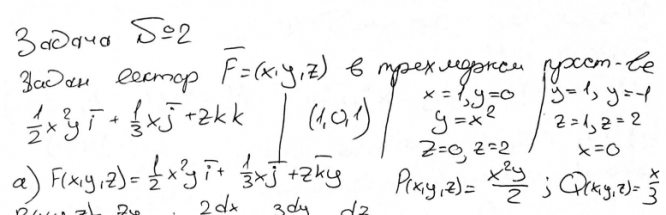 Задача №2
Задан вектор F̅=(x,y,z) в трехмерном простр-ве
½x²y i̅ + ⅓x j̅ + zk k | (1,0,1) | x=1, y=0 | y=1, y=-1
y=x² | z=1, z=2
z=0, z=2 | x=0
а) F(x,y,z)=½x²y i̅ + ⅓x j̅ + z k̅ y P(x,y,z)=x²y/2 ; Q(x,y,z)=x/3
2dx 3dy dz